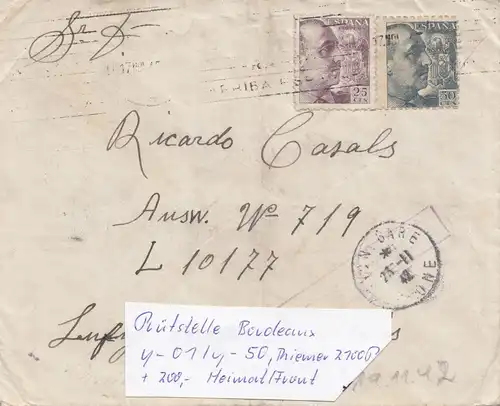 Sr. D.
ARRIBA ES
ESPAÑA
25
CTS
ESPAÑA
50
CTS
Ricardo Casals
Ausw. Nº 719
L 10177
GARE
23-11
42
Prüfstelle Bordeaux
y-01/y-50, Thiemer 2100P
+ 200,- Heimat/Front
19.11.42